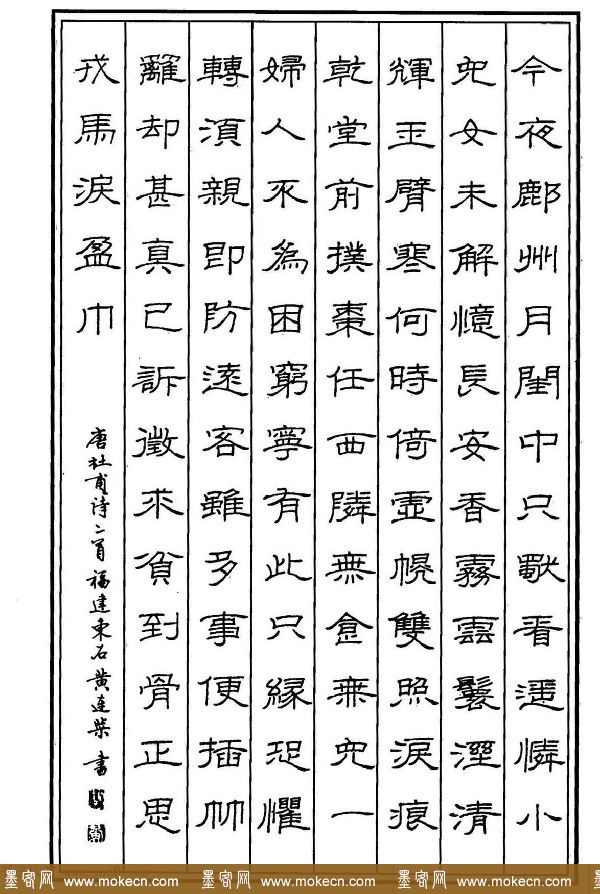 今夜鄜州月閨中只獨看遥憐小
兒女未解憶長安香霧雲鬟溼清
輝玉臂寒何時倚虛幌雙照淚痕
乾堂前撲棗任西隣無食無兒一
婦人不為困窮寧有此只緣恐懼
轉須親即防遠客雖多事便插竹
離却甚真已訴徵求貧到骨正思
戎馬淚盈巾
唐杜甫诗二首福建東石黄連榮書
墨客网 www.mokecn.com 墨客网 www.mokecn.com 墨客网 www.mokecn.com